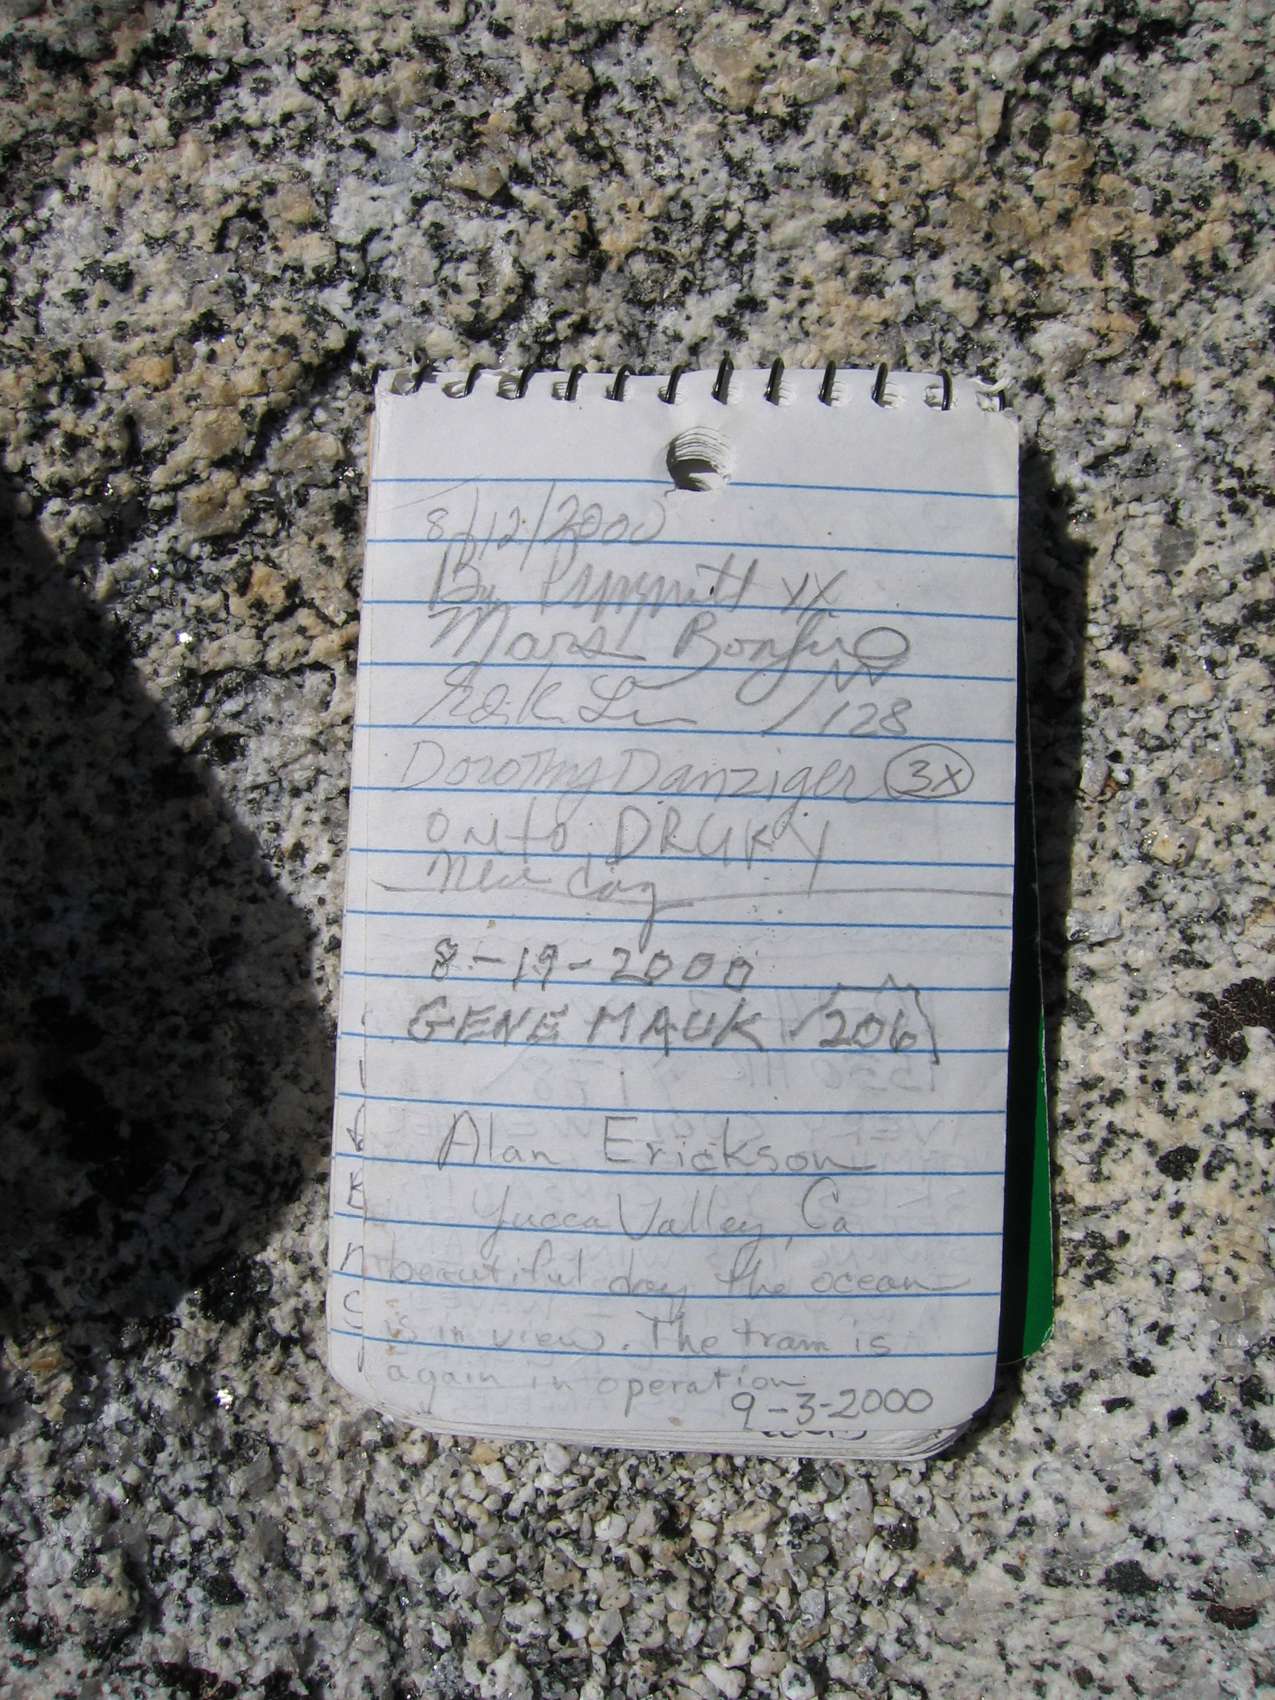 8/12/2000
Mars Bonfire
Erik Lin /128
Dorothy Danziger 3X
onto DRURY
New day
8-19-2000
GENE MAUK 206
Alan Erickson
Yucca Valley, Ca
beautiful day the ocean
is in view. The tram is
again in operation
9-3-2000